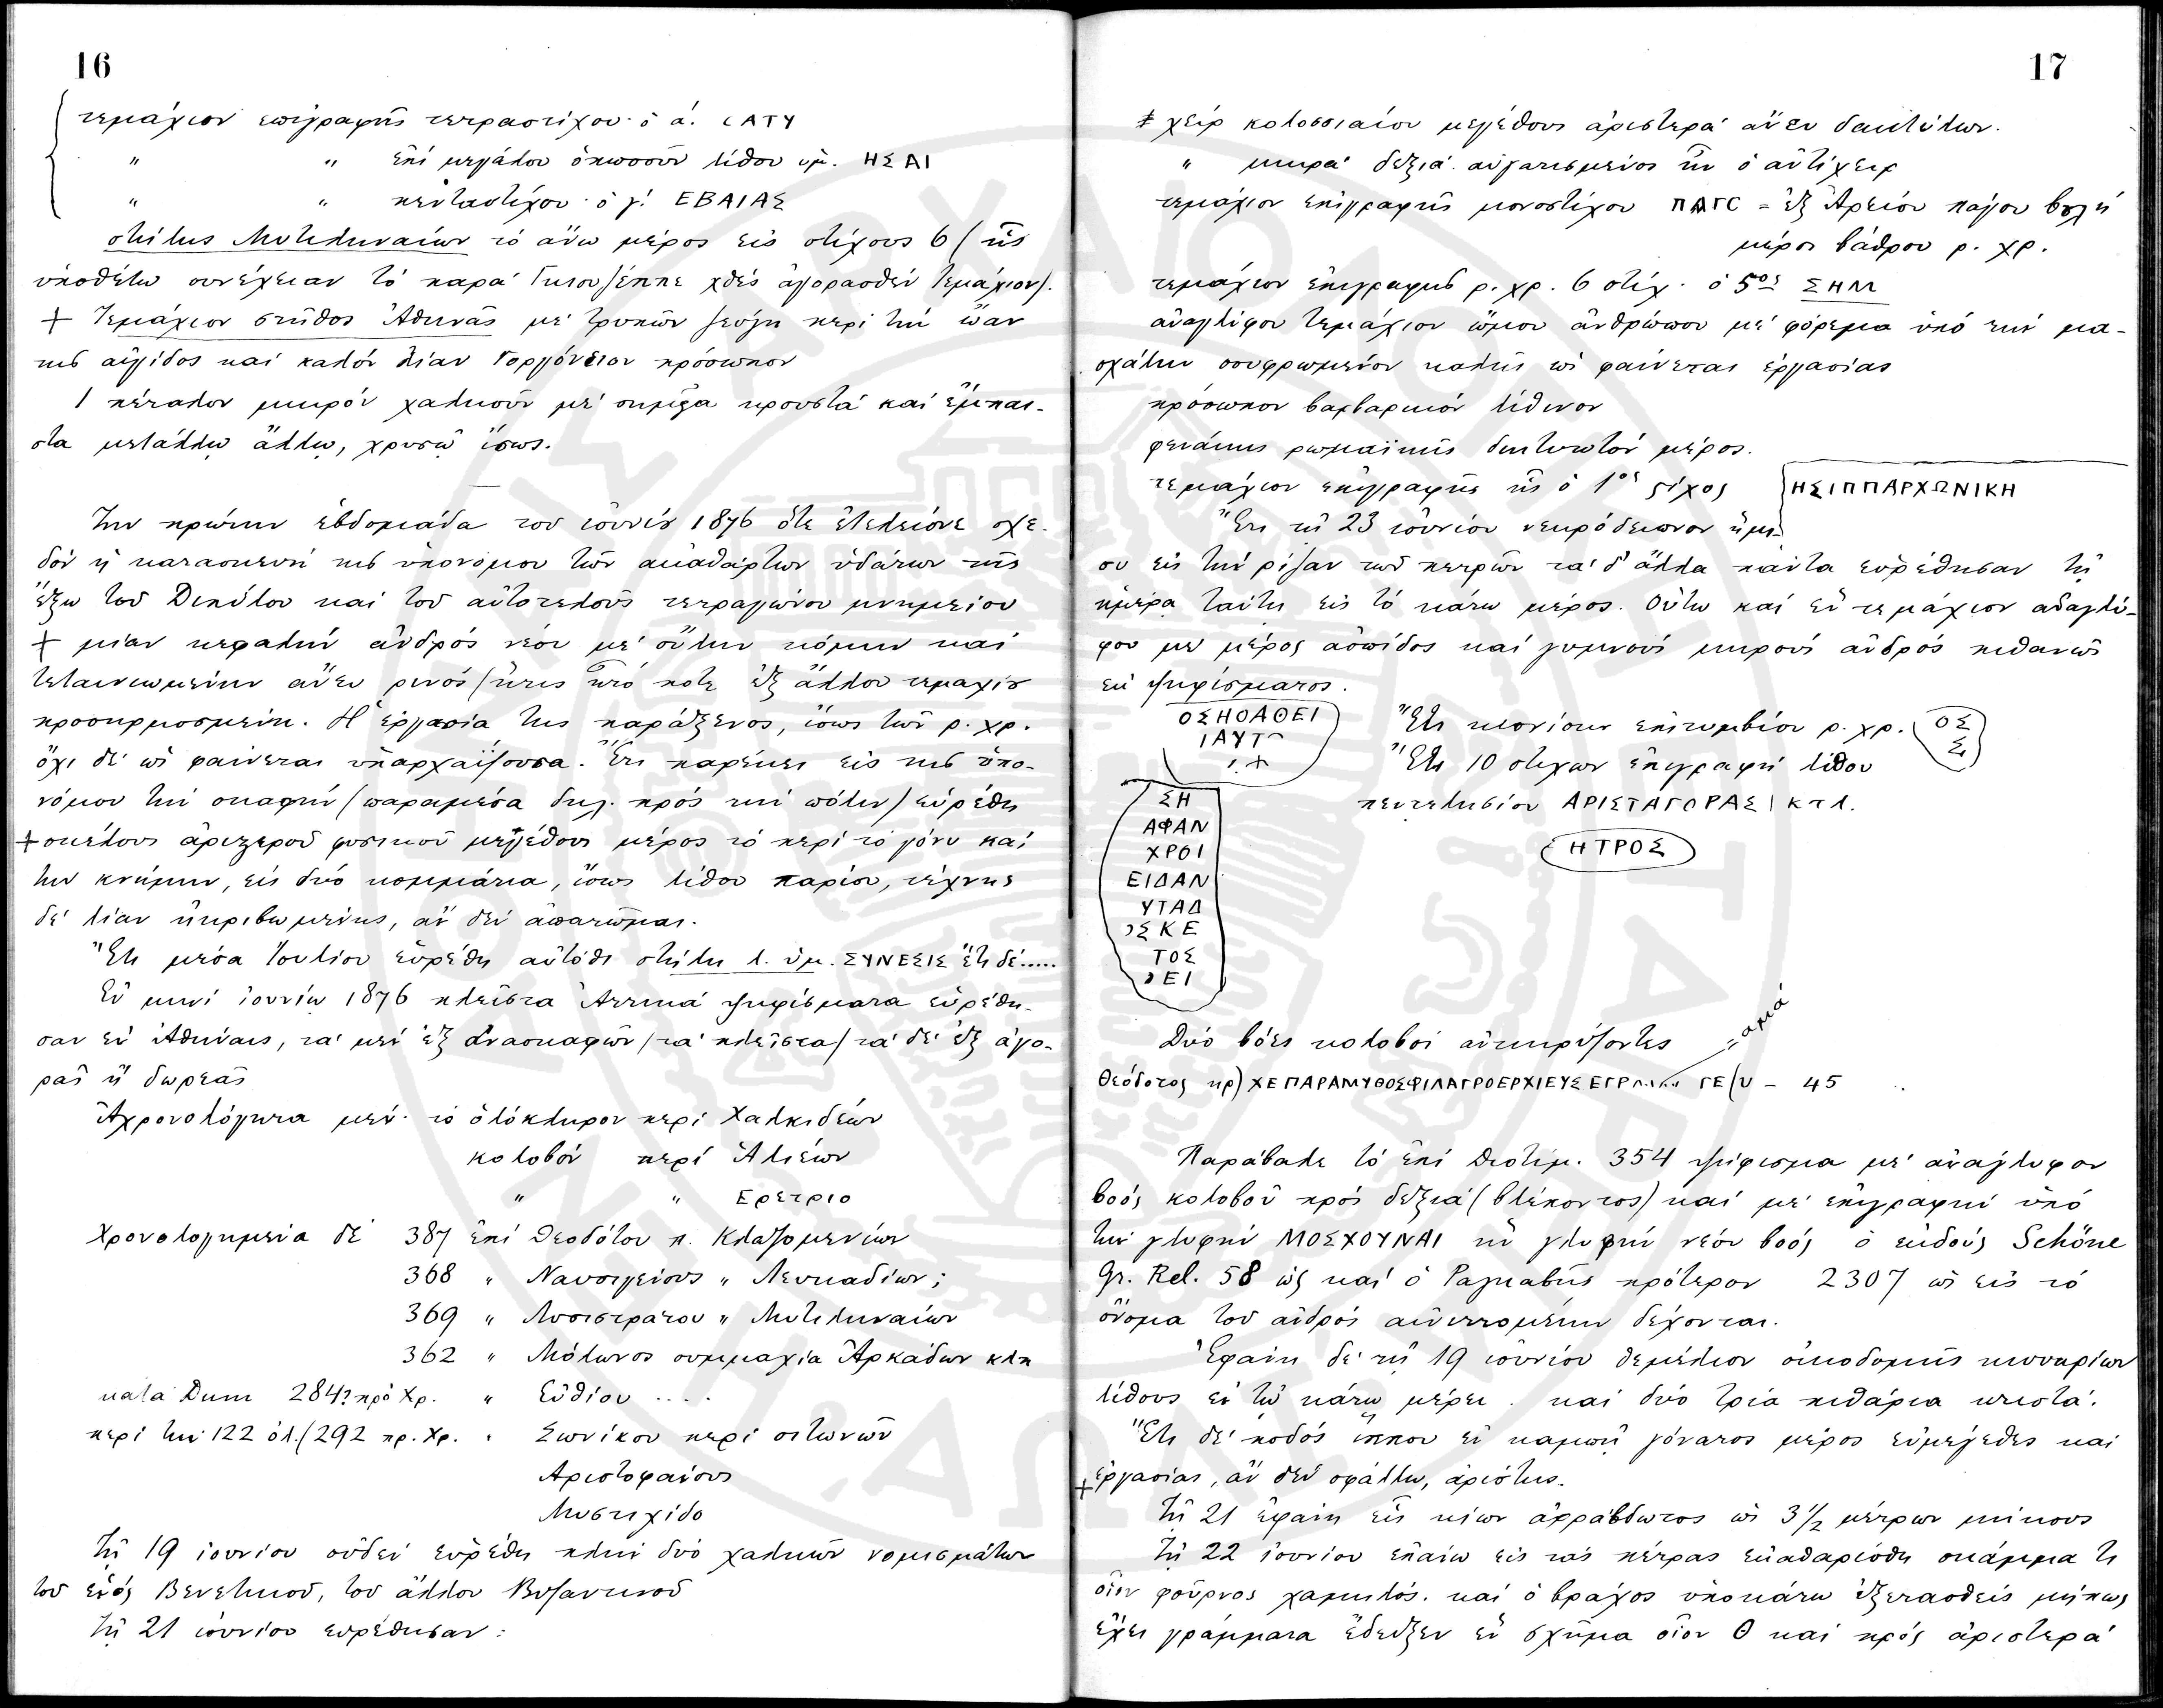 16
τεμάχιον επιγραφῆς τετραστίχου· ὁ ά. ϹΑΤΥ
" " ἐπί μεγάλου ὁπωσοῦν λίθου ὑμ. ΗΣΑΙ
" " πενταστίχου· ὁ γ! ΕΒΑΙΑΣ
στήλης Μυτιληναίων τό ἄνω μέρος εἰς στίχους 6 (ἧς
ὑποθέτω συνέχειαν τό παρά χθές ἀγορασθέν τεμάχιον).
+ Τεμάχιον στῆθος Ἀθηνᾶς μέ τρυπῶν ζεύγη περί τήν ὤαν
τῆς αἰγίδος καί καλόν λίαν Γοργόνειον πρόσωπον
1 πέταλον μικρόν χαλκοῦν μέ σημεῖα κρουστά καί ἔμπαι-
στα μετάλλῳ ἄλλῳ, χρυσῷ ἴσως.
Τήν πρώτην ἑβδομάδα του ἰουνίου 1876 ὅτε ἐτελείονε σχε-
δόν ἡ κατασκευή τῆς ὑπονόμου τῶν ἀκαθάρτων ὑδάτων τῆς
ἔξω τοῦ Διπύλου καί τοῦ αὐτοτελοῦς τετραγώνου μνημείου
+ μίαν κεφαλήν ἀνδρός νέου μέ οὔλην κόμην καί
τεταινιωμένην ἄνευ ρινός (ἥτις ἦτό ποτε ἐξ ἄλλου τεμαχίου
προσηρμοσμένη. Ἡ ἐργασία της παράξενος, ἴσως τῶν ρ. χρ.
ὄχι δέ ὡς φαίνεται ὑπαρχαΐζουσα. Ἔτι παρέκει εἰς τῆς ὑπο-
νόμου τήν σκαφήν (παραμέσα δηλ. πρός τήν πόλιν) εὑρέθη
+ σκέλους ἀριστεροῦ φυσικοῦ μεγέθους μέρος τό περί τό γόνυ καί
τήν κνήμην, εἰς δύο κομμάτια, ἴσως λίθου παρίου, τέχνης
δέ λίαν ἠκριβωμένης, ἄν δέν ἀπατῶμαι.
Ἔτι μέσα Ἰουλίου εὑρέθη αὐτόθι στήλη λ. ὑμ. ΣΥΝΕΣΙΣ ἔτι δέ.....
Ἐν μηνί ἰουνίῳ 1876 πλεῖστα Ἀττικά ψηφίσματα εὑρέθη-
σαν ἐν Ἀθήναις, τά μέν ἐξ ἀνασκαφῶν (τά πλεῖστα) τά δέ ἐξ ἀγο-
ρᾶς ἤ δωρεᾶς
Ἀχρονολόγητα μέν· τό ὁλόκληρον περί Χαλκιδέων
κολοβόν περί Ἁλιέων
" " Ερετριο
Χρονολογημένα δέ 387 ἐπί Θεοδότου π. Κλαζομενίων
368 " Ναυσιγένους " Λευκαδίων;
369 " Λυσιστράτου " Μυτιληναίων
362 " Μόλωνος συμμαχία Ἀρκάδων κλπ
κατα Dum 284? πρό Χρ. " Εὐθίου ....
περί τήν 122 όλ. (292 πρ. Χρ. " Σωνίκου περί σιτωνῶν
Αριστοφαίνους
Μυστιχίδο
Τῇ 19 ἰουνίου οὐδέν εὑρέθη πλήν δύο χαλκῶν νομισμάτων
τοῦ ἑνός Βενετικοῦ, τοῦ ἄλλου Βυζαντινοῦ
Τῇ 21 ἰουνίου εὑρέθησαν:
17
+ χείρ κολοσσιαίου μεγέθους ἀριστερά ἄνευ δακτύλων.
" μικρά δεξιά ἧς ὁ ἀντίχειρ
τεμάχιον ἐπιγραφῆς μονοστίχου ΠΑΓϹ = ἐξ Ἀρείου πάγου βουλή
μέρος βάθρου ρ. χρ.
τεμάχιον ἐπιγραφῆς ρ. χρ. 6 στίχ. ὁ 5ος ΣΗΜ
ἀναγλύφου τεμάχιον ὤμου ἀνθρώπου μέ φόρεμα ὑπό τήν μα-
σχάλην σουφρωμένον καλῆς ὡς φαίνεται ἐργασίας
πρόσωπον βαρβαρικόν λίθινον
φενάκης ρωμαϊκῆς δικτυωτόν μέρος.
τεμάχιον ἐπιγραφῆς ἧς ὁ 1ος στίχος ΗΣΙΠΠΑΡΧΩΝΙΚΗ
Ἔτι τῇ 23 ἰουνίου νεκρόδειπνον ἥμι-
συ εἰς τήν ρίζαν τῶν πετρῶν τά δ' ἄλλα πάντα εὑρέθησαν τῇ
ἡμέρᾳ ταύτῃ εἰς τό κάτω μέρος. Οὕτω καί ἕν τεμάχιον αναγλύ-
φου με μέρος ἀσπίδος καί γυμνοῦ μηροῦ ἀνδρός πιθανῶς
ἐκ ψηφίσματος.
ΟΣΗΟΑΘΕΙ
ΙΑΥΤ
Ἔτι κιονίσκος ἐπιτυμβίου ρ. χρ. ΟΣ
Σ
Ἔτι 10 στίχων ἐπιγραφή λίθου
πεντελησίου ΑΡΙΣΤΑΓΟΡΑΣ | κτλ.
ΣΗ
ΑΦΑΝ
ΧΡΟΙ
ΕΙΔΑΝ
ΥΤΑΔ
ΟΣΚΕ
ΤΟΣ
ΟΕΙ
ΗΤΡΟΣ
Δύο βόες κολοβοί ἀντικρύζοντες
Θεόδοτος κρ) ΧΕΠΑΡΑΜΥΘΟΣΦΙΛΑΓΡΟΕΡΧΙΕΥΣΕΓΡ ΓΕ(υ – 45
Παράβαλε τό ἐπί Θεοτίμ. 354 ψήφισμα μέ ἀνάγλυφον
βοός κολοβοῦ πρός δεξιά (βλέποντος) καί μέ ἐπιγραφήν ὑπό
τήν γλυφήν ΜΟΣΧΟΥΝΑΙ τήν γλυφήν νέου βοός ὁ ἐκδούς Schöne
Gr. Rel. 58 ὡς καί ὁ Ραγκαβῆς πρότερον 2307 ὡς εἰς τό
ὄνομα τοῦ ἀνδρός αἰνιττομένην δέχονται.
Ἐφάνη δέ τῇ 19 ἰουνίου θεμέλιον οἰκοδομῆς
λίθους ἐν τῷ κάτω μέρει. καί δύο τρία πιθάρια
Ἔτι δέ ποδός ἵππου ἐν καμπῇ γόνατος μέρος εὐμέγεθες καί
+ ἐργασίας, ἄν δέν σφάλλω, ἀρίστης.
Τῇ 21 ἐφάνη εἷς κίων ἀρράβδωτος ὡς 3 1/2 μέτρων μήκους
Τῇ 22 ἰουνίου ἐπάνω εἰς τάς πέτρας ἐκαθαρίσθη σκάμμα τι
οἷον φοῦρνος χαμηλός. καί ὁ βράχος ὑποκάτω ἐξετασθείς μήπως
ἔχει γράμματα ἔδειξεν ἕν σχῆμα οἷον Θ καί πρός ἀριστερά